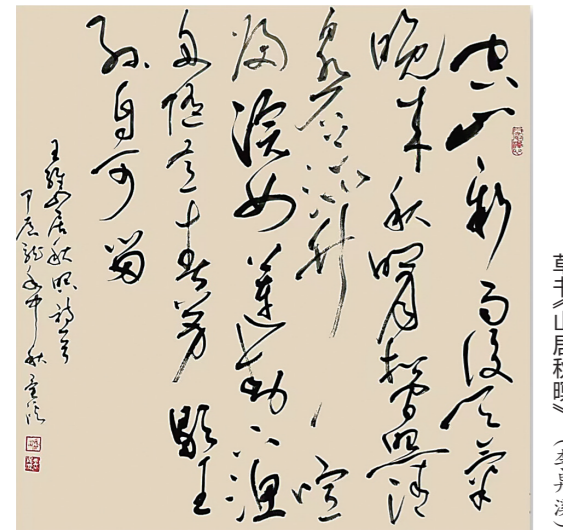 空山新雨後天氣
晚來秋明月松間照清
泉石上流竹喧
歸浣女蓮動下漁
舟隨意春芳歇王
孫自可留
王維山居秋暝詩一首
甲辰龍年中秋
草书《山居秋暝》